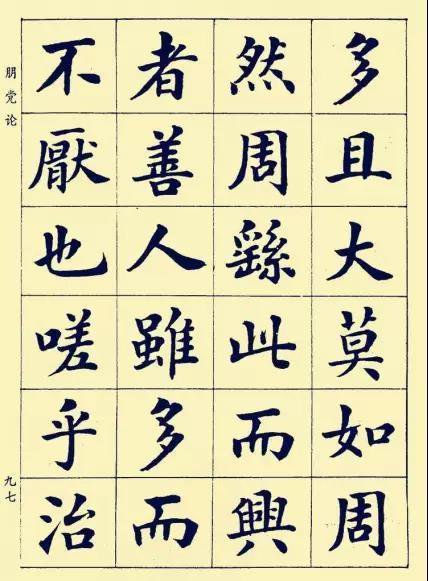 多且大莫如周
然周繇此而興
者善人雖多而
不厭也嗟乎治
朋党论
九七